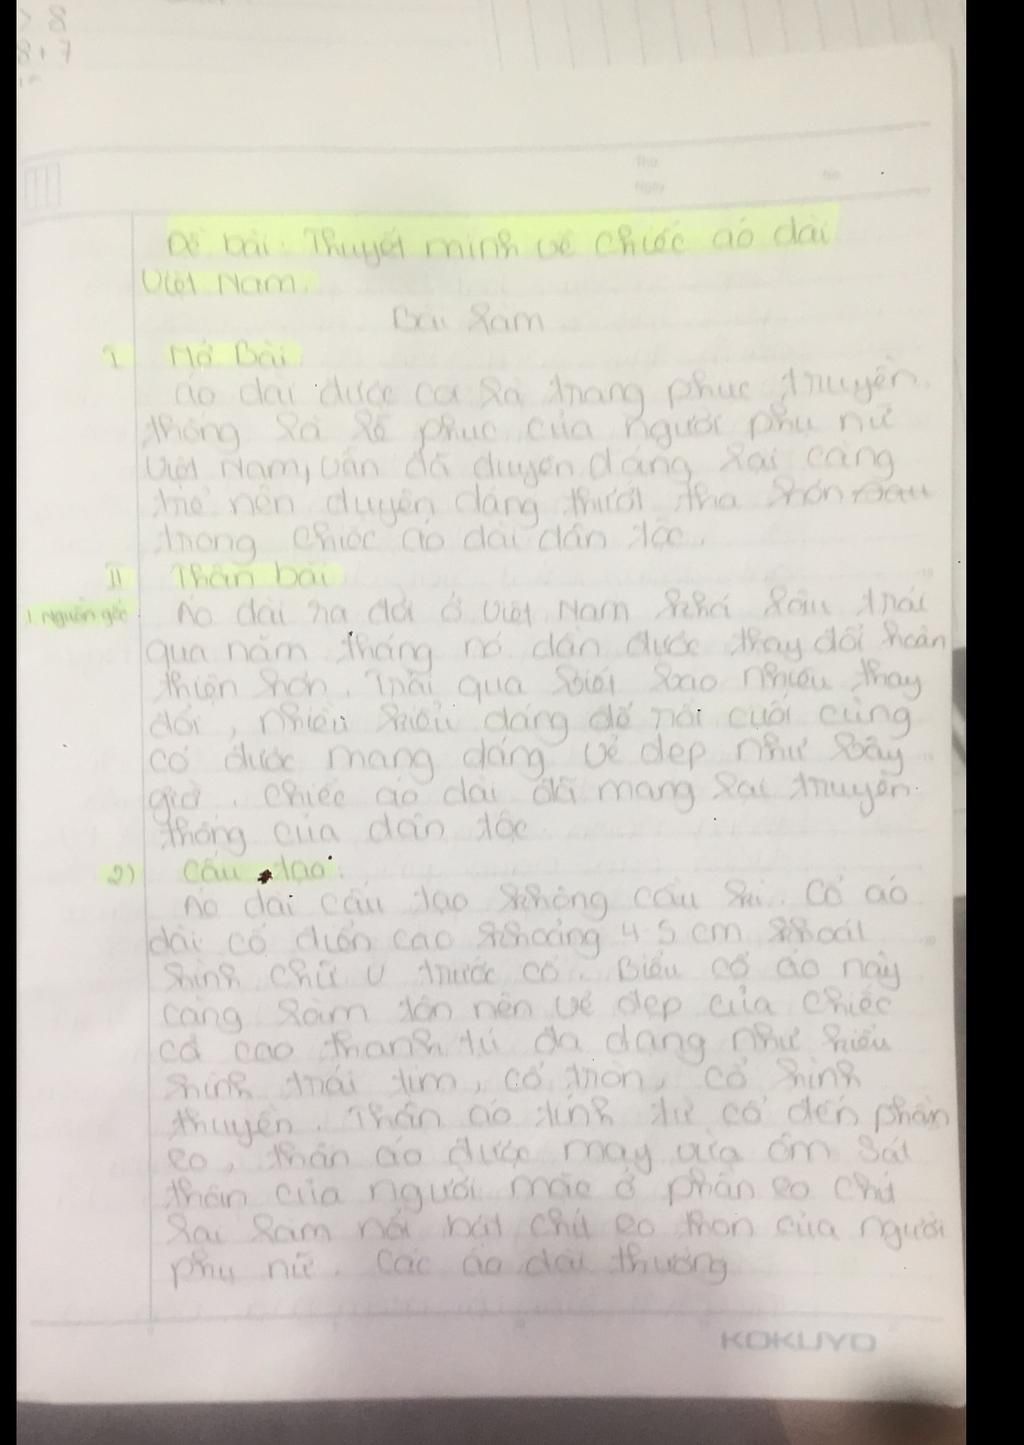 8
8+7
Thứ
Ngày
No
Đề bài: Thuyết minh về chiếc áo dài
Việt Nam.
Bài làm
I Mở Bài.
Áo dài được coi là trang phục truyền
thống là lễ phục của người phụ nữ
Việt Nam, vẫn đã duyên dáng lại càng
trở nên duyên dáng thướt tha hơn
trong chiếc áo dài dân tộc.
II Thân bài
1. Nguồn gốc Áo dài ra đời ở Việt Nam khá lâu trải
qua năm tháng nó dần được thay đổi hoàn
thiện hơn. Trải qua biết bao nhiêu thay
đổi, nhiều kiểu dáng để rồi cuối cùng
có được mang dáng vẻ đẹp như bây
giờ. Chiếc áo dài đã mang lại truyền
thống của dân tộc
2) Cấu tạo:
Áo dài cấu tạo không cầu kì. Cổ áo
dài cổ điển cao khoảng 4-5 cm khoét
hình chữ U trước cổ. Biểu cổ áo này
càng làm tôn nên vẻ đẹp của chiếc
cổ cao thanh tú đa dạng như kiểu
hình trái tim, cổ tròn, cổ hình
thuyền. Thân áo tính từ cổ đến phần
eo, thân áo được may vừa ôm sát
thân của người mặc ở phần eo chú
lại làm nổi bật chú eo thon của người
phụ nữ. Các áo dài thường
KOKUYO